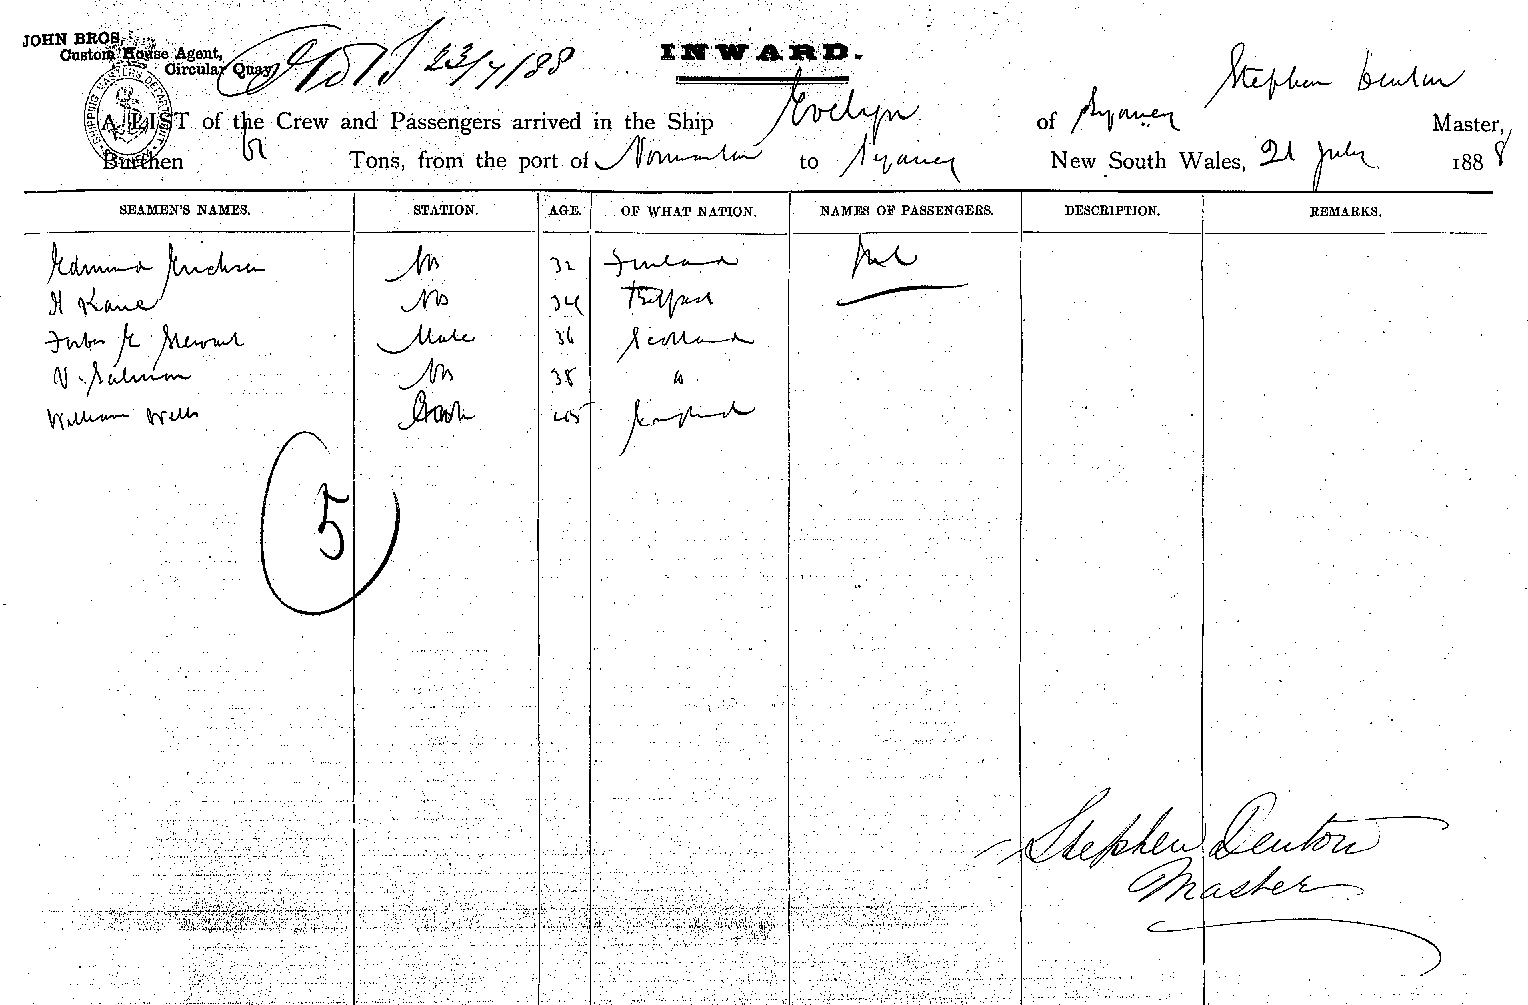 INWARD.
JOHN BROS,
Custom House Agent,
Circular Quay
23/7/88
Stephen Denton
A LIST of the Crew and Passengers arrived in the Ship Evelyn of Sydney Master,
Burthen 61 Tons, from the port of Normanton to Sydney New South Wales, 21 July 1888
SEAMEN'S NAMES. STATION. AGE. OF WHAT NATION. NAMES OF PASSENGERS. DESCRIPTION. REMARKS.
Edmund Erichsen AB 32 Finland Nil
H Kane AB 34 Belfast
Forbes Stewart Mate 36 Scotland
V. Salmon AB 38 "
William Wells Cook 45 England
5
Stephen Denton
Master